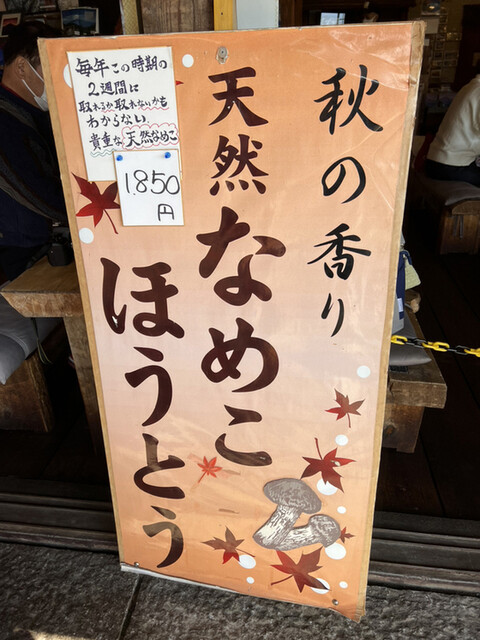 秋の香り
天然なめこ
ほうとう
毎年この時期の
2週間に
取れるか取れないかも
わからない
貴重な天然なめこ
1.850
円